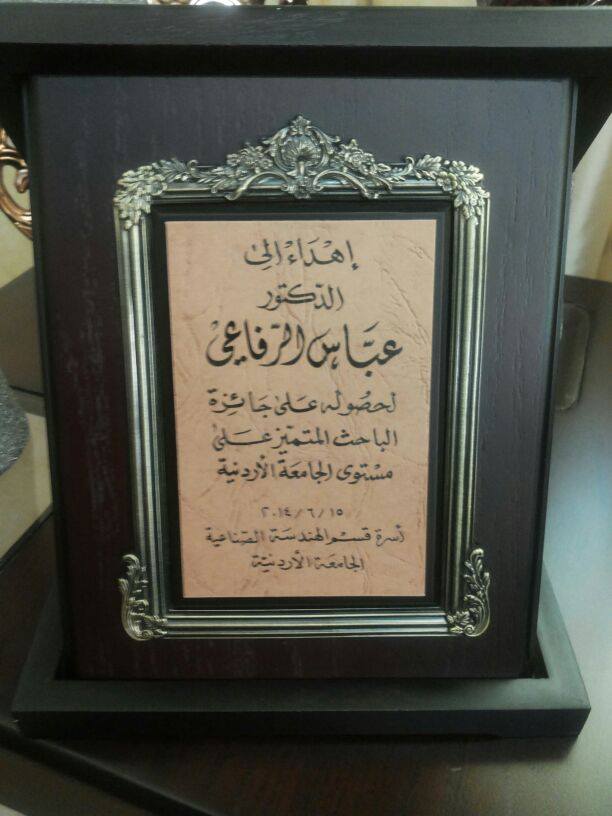 إهداء إلى
الدكتور
عباس الرفاعي
لحصوله على جائزة
الباحث المتميز على
مستوى الجامعة الأردنية
٢٠١٤/٦/١٥
أسرة قسم الهندسة الصناعية
الجامعة الأردنية